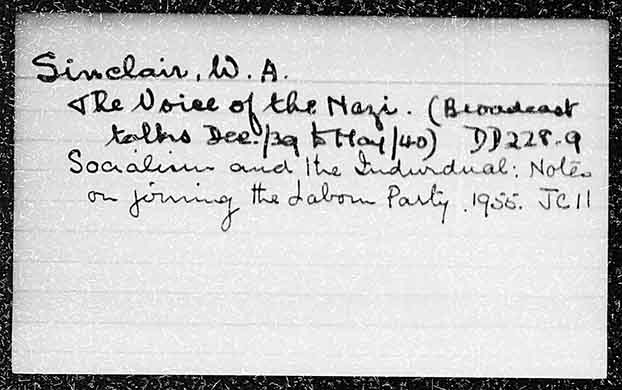 Sinclair, W. A.
The Voice of the Nazi. (Broadcast
talks Dec./39 to May/40) DD228.9
Socialism and the Individual: Notes
on joining the Labour Party. 1955. JC11